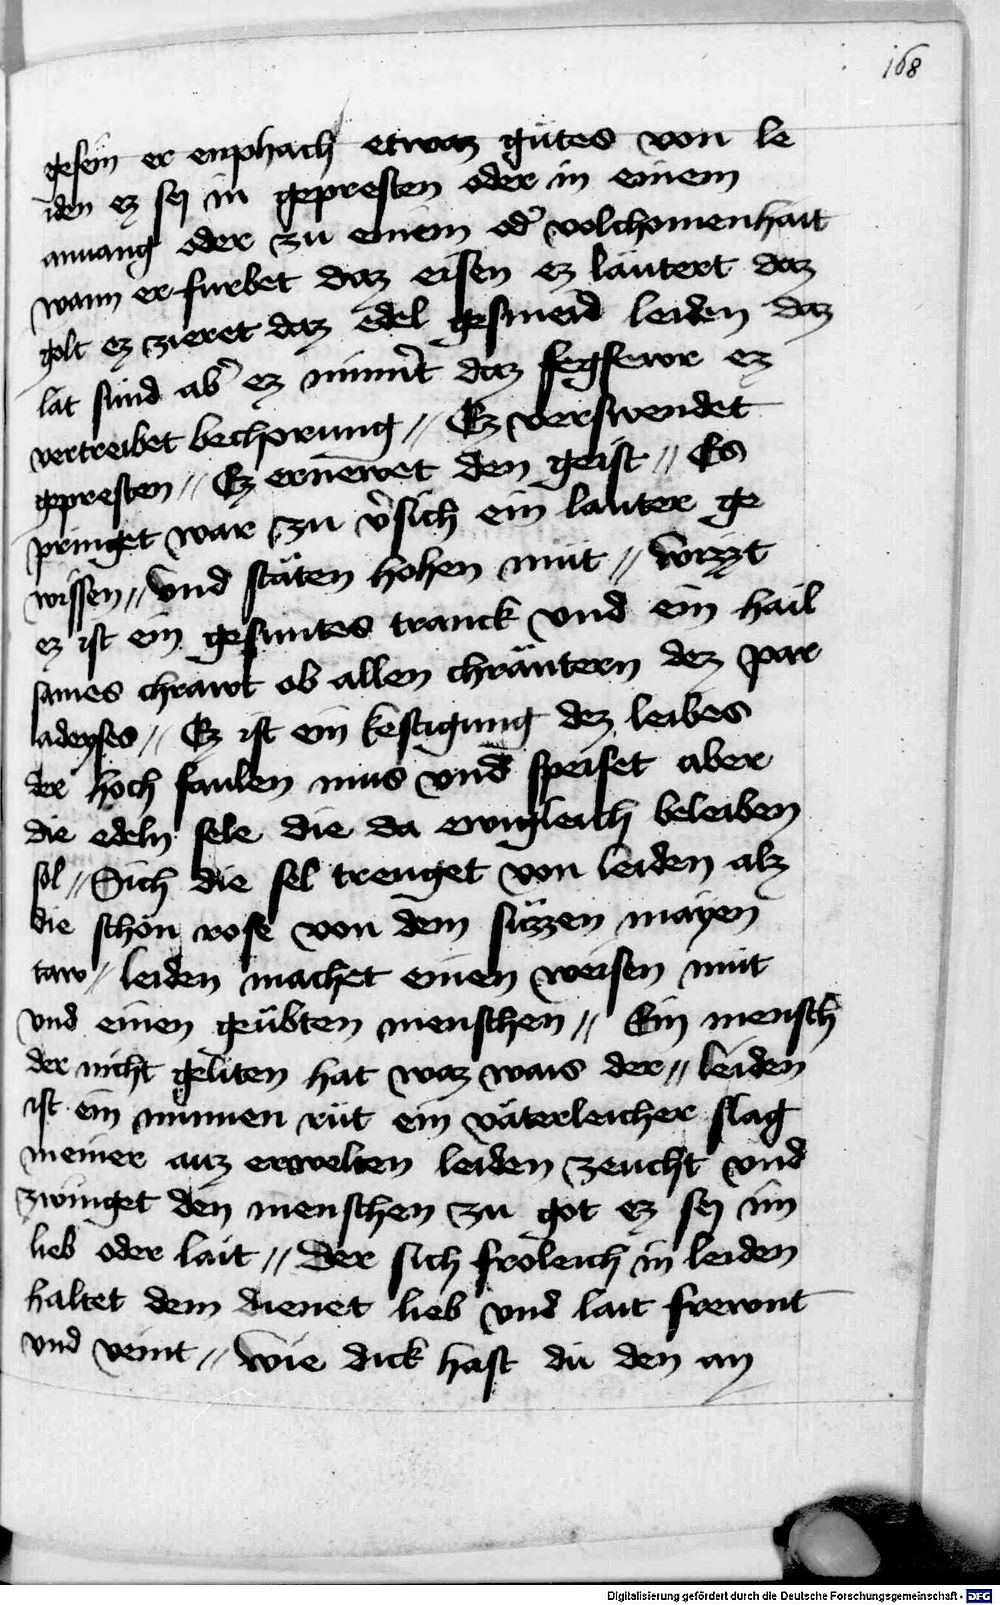 168
gesein er enphach etwaz gütes von le
iden ez sej in gepresten oder in einem
anuang oder zu einem od̾ volchomenhait
wann er furbet daz eisen ez läutert daz
golt ez zieret daz edel gesmeid leiden daz
lät sünd ab̾ ez nimm̾t daz fegfewr ez
vertreibet bechorung // Ez verswendet
gepresten // Ez ernewet den geist // Es
pringet war zu v̾sich ein lauter ge
wissen // vnd stäten hohen müt // wizzt
ez ist ein gesuntes tranck vnd ein hail
sames chrawt ob allen chräutern dez par
adeyses // Ez ist ein kestigung dez leibes
der hoch faulen mus vnd speiset aber
die edeln sele die da ewigleich beleiben
sol // Sich die sel trenget von leiden alz
die schön rose von dem süzzen mäyen
taw // leiden machet einen weisen müt
vnd einen geübten menschen // Ein mensch
der nicht geliten hat waz wais der // leiden
ist ein minnen rüt ein väterleicher slag
meiner auz erwelten leiden zeucht vnd
zwinget den menschen zu got ez sej im
lieb oder lait // Der sich fröleich in leiden
haltet dem dienet lieb vnd lait frewnt
vnd veint // wie dick hast du den an
Digitalisierung gefördert durch die Deutsche Forschungsgemeinschaft - DFG